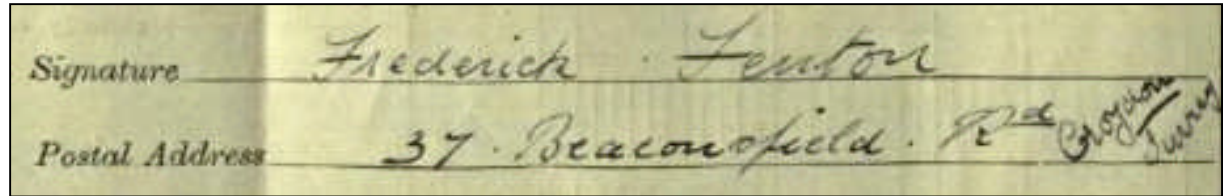 Signature Frederick Fenton
Postal Address 37. Beaconsfield. Rd Croydon
Surrey